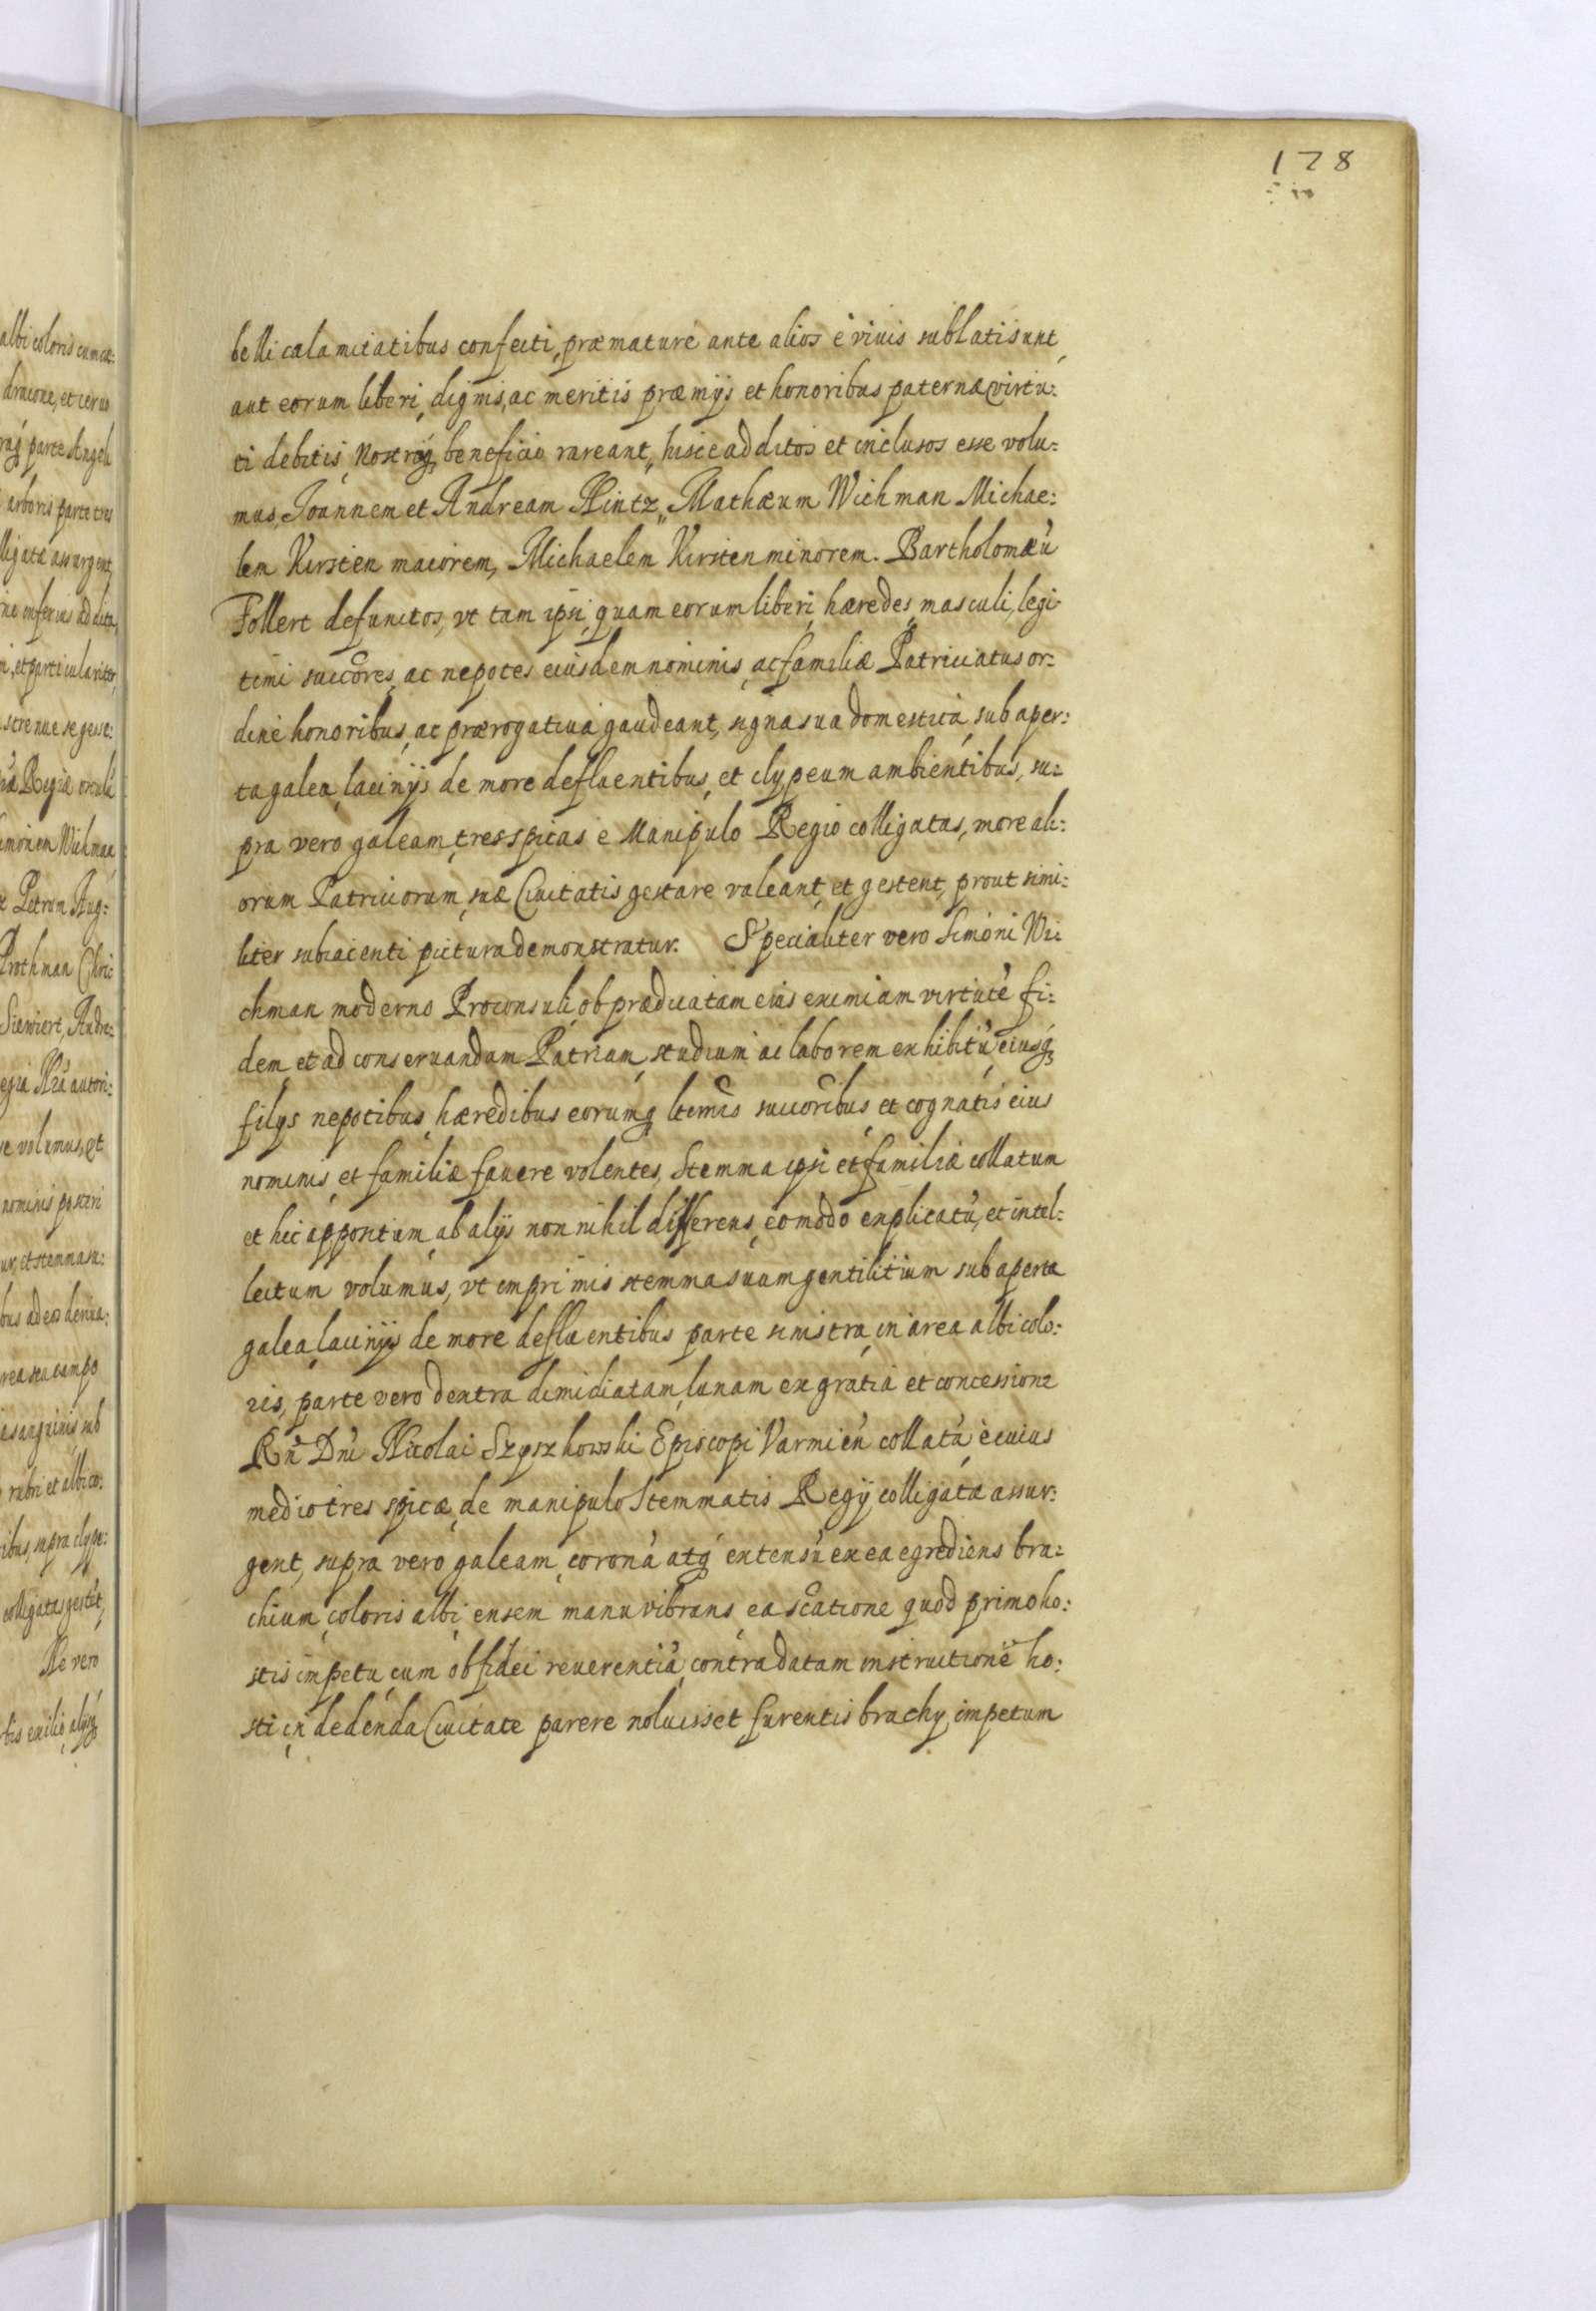 178
belli calamitatibus confecti, præmaturè ante alios è viuis sublati sunt,
aut eorum liberi, dignis, ac meritis præmijs et honoribus paternæ virtu:
ti debitis, Nostroq₃ beneficio careant, hisce additos et inclusos esse volu:
mus, Joannem et Andream Hintz, Mathæum Wichman Michae:
lem Kirsten maiorem, Michaelem Kirsten minorem. Bartholomæũ
Follert defunctos, vt tam ipsi, quam eorum liberi, hæredes, masculi, legi
timi succōres, ac nepotes eiusdem nominis, ac familiæ Patriciatus or:
dine honoribus, ac prærogatiua gaudeant, signa sua domestica, sub aper:
ta galea, lacinijs de more defluentibus, et clypeum ambientibus, su:
pra vero galeam, tres spicas è Manipulo Regio colligatas, more ali:
orum Patriciorum, suæ Ciuitatis gestare valeant, et gestent, prout simi:
liter subiacenti pictura demonstratur. Specialiter vero Simoni Wi:
chman moderno Proconsuli, ob prædicatam eius eximiam virtutē fi:
dem et ad conseruandam Patriam, studium ac laborem exhibitũ, eiusq₃
filijs nepotibus, hæredibus eorumq₃ ltimis succōribus, et cognatis eius
nominis, et familiæ fauere volentes, Stemma ipsi et familiæ collatum
et hic appositum, ab alijs non nihil differens, eo modo explicatũ, et intel:
lectum volumus, vt imprimis stemma suum gentilitium sub aperta
galea, lacinijs de more defluentibus parte sinistra, in area albi colo:
ris, parte vero dextra dimidiatam, lunam ex gratia et concessione
Rñ Dñi Nicolai Szyszkowski Episcopi Varmieñ collatã, è cuius
medio tres spicæ, de manipulo Stemmatis Regij colligatæ assur:
gent, supra vero galeam, coronã atq₃ extensũ ex ea egrediens bra:
chium, coloris albi, ensem manu vibrans, ea rātione quod primo ho:
stis impetu, cum ob fidei reuerentiã, contra datam instructionē ho:
sti in dedenda Ciuitate parere noluisset furentis brachij impetum
albi coloris cum
dracone, et
parte Angeli
arboris parte tres
assurgent
inferius addita,
et particulariter,
strenue se gesse:
Regiæ
Simonem Wichman
Petrum Aug:
Prothman Chri:
Siewiert, Andre:
autori:
volumus, et
nominis posteri
et stemma su:
bus ad eos deriua:
campo
sanguinis sub
rubri et albi co:
supra clype:
colligatas gestēt,
Ne vero
exilio, alijsq₃